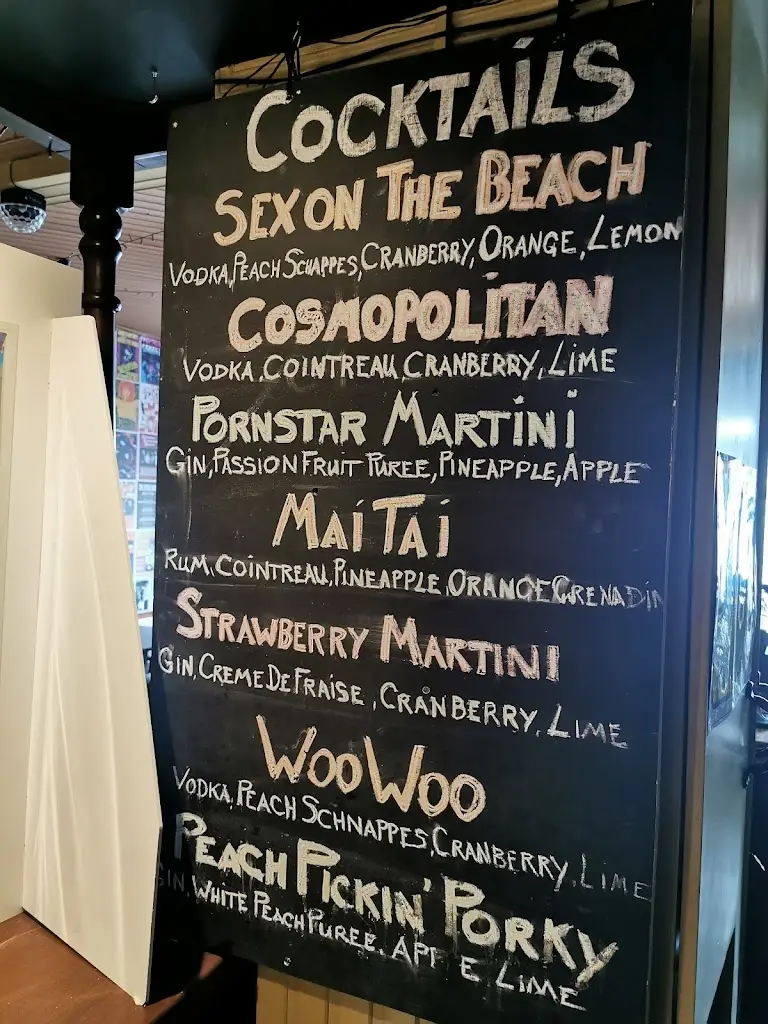 COCKTAILS
SEX ON THE BEACH
VODKA, PEACH SCHAPPES, CRANBERRY, ORANGE, LEMON
COSMOPOLITAN
VODKA, COINTREAU, CRANBERRY, LIME
PORNSTAR MARTINI
GIN, PASSION FRUIT PUREE, PINEAPPLE, APPLE
MAI TAI
RUM, COINTREAU, PINEAPPLE, ORANGE, GRENADIN
STRAWBERRY MARTINI
GIN, CREME DE FRAISE, CRANBERRY, LIME
WOO WOO
VODKA, PEACH SCHNAPPES, CRANBERRY, LIME
PEACH PICKIN' PORKY
GIN, WHITE PEACH PUREE, AP E LIME